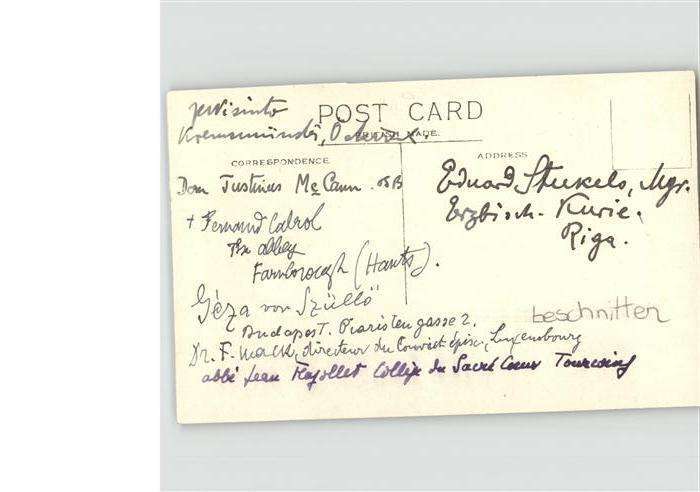 POST CARD
Kremsmünster,
MADE.
CORRESPONDENCE
ADDRESS
Dom Justinus McCann. OSB
Eduard Stukels, Mgr.
Erzbisch. Kurie.
Riga.
+ Fernand Cabrol
The abbey
Farnborough (Hants).
Géza von Szüllő
Budapest. Piaristengasse 2.
beschnitten
Dr. F. Mack, directeur du Convict épisc., Luxembourg
abbé Jean Collège du Sacré Coeur Tourcoing